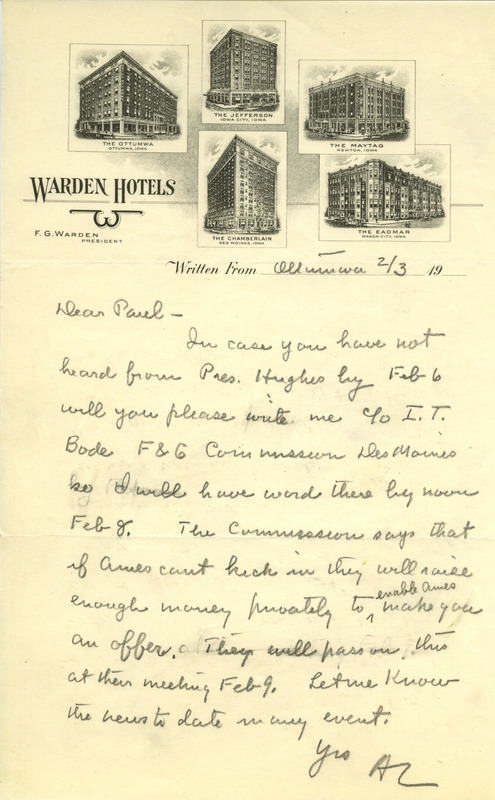 THE OTTUMWA
OTTUMWA, IOWA
THE JEFFERSON
IOWA CITY, IOWA
THE MAYTAG
NEWTON, IOWA
WARDEN HOTELS
W
F. G. WARDEN
PRESIDENT
THE CHAMBERLAIN
DES MOINES, IOWA
THE EADMAR
MASON CITY, IOWA
Written From Ottumwa 2/3 19
Dear Paul –
In case you have not
heard from Pres. Hughes by Feb 6
will you please write me c/o I.T.
Bode F & G Commission Des Moines
so I will have word there by noon
Feb 8. The Commission says that
if Ames cant kick in they will raise
enough money privately to enable Ames make you
an offer. They will pass on this
at their meeting Feb 9. Let me know
the news to date in any event.
Yrs AL